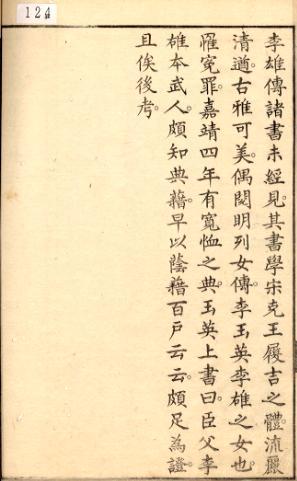 124
李雄傳諸書未經見其書學宋克王履吉之體流麗
清遒古雅可美偶閱明列女傳李玉英李雄之女也
罹寃罪嘉靖四年有寬恤之典玉英上書曰臣父李
雄本武人頗知典籍早以蔭藉百戶云云頗足為證
且俟後考